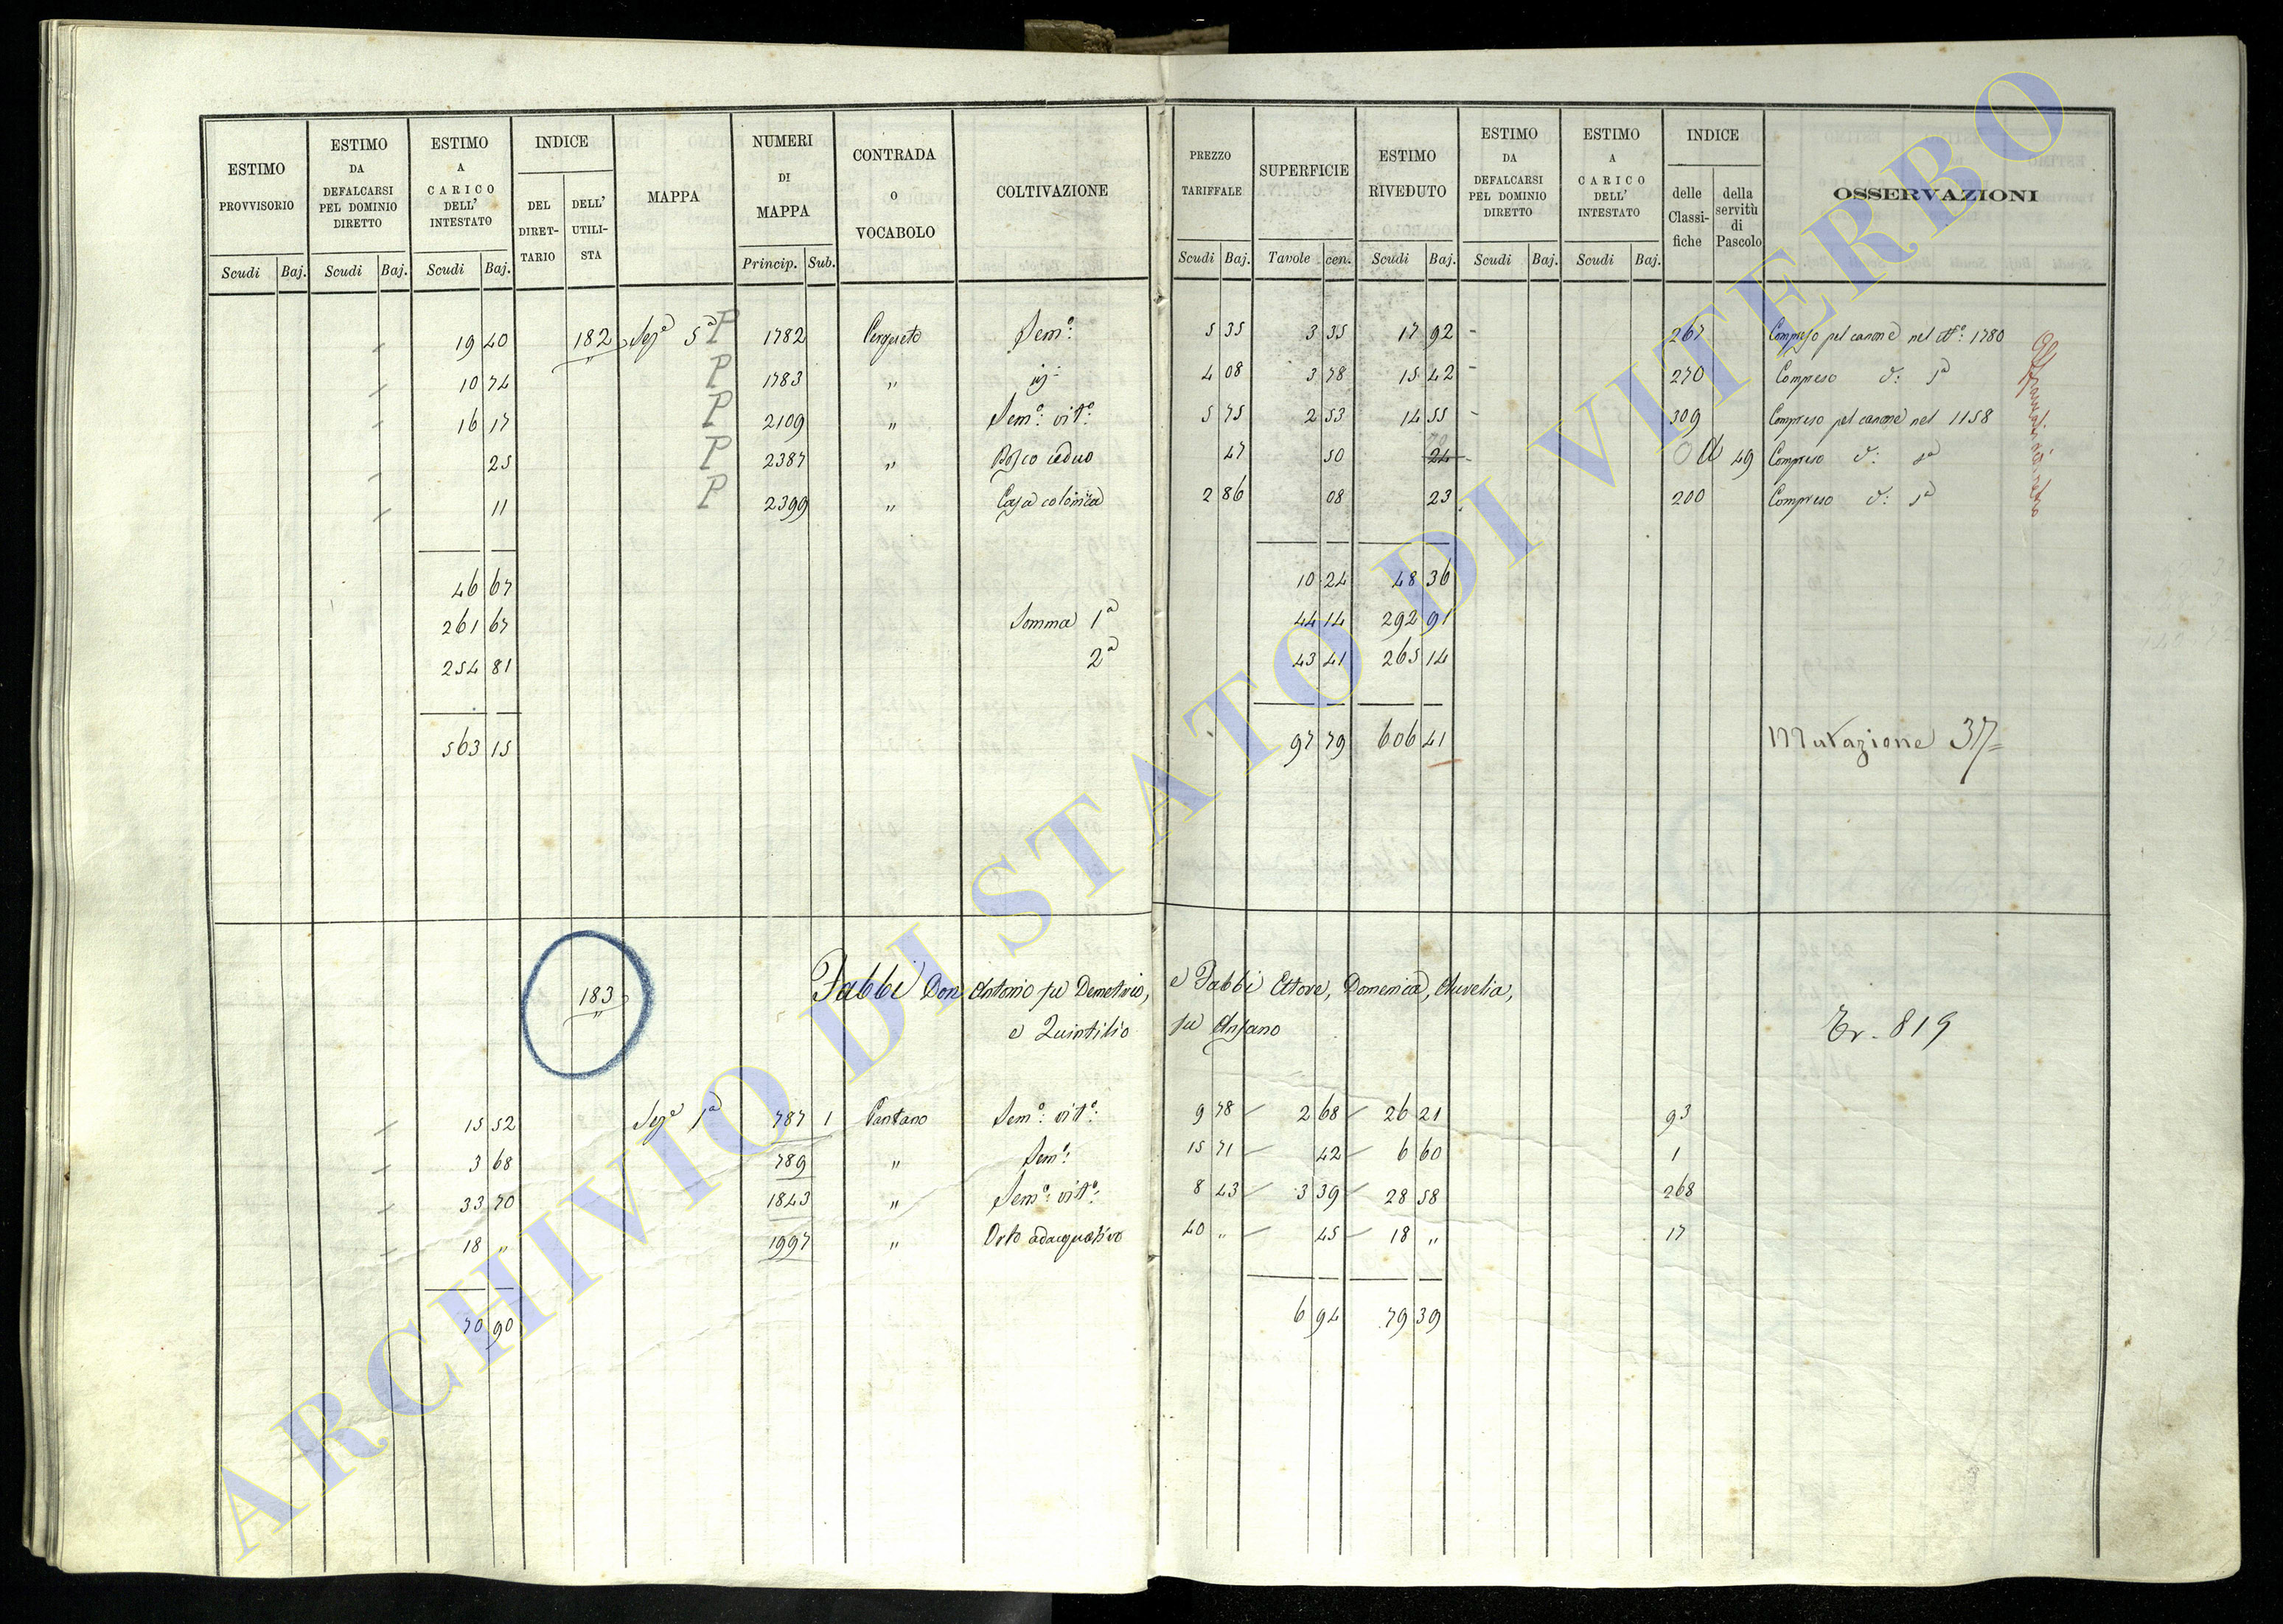 ESTIMO PROVVISORIO | ESTIMO DA DEFALCARSI PEL DOMINIO DIRETTO | ESTIMO A CARICO DELL' INTESTATO | INDICE | MAPPA | NUMERI DI MAPPA | CONTRADA O VOCABOLO | COLTIVAZIONE | PREZZO TARIFFALE | SUPERFICIE | ESTIMO RIVEDUTO | ESTIMO DA DEFALCARSI PEL DOMINIO DIRETTO | ESTIMO A CARICO DELL' INTESTATO | INDICE | OSSERVAZIONI
DEL DIRET-TARIO | DELL' UTILI-STA | delle Classi-fiche | della servitù di Pascolo
Scudi | Baj. | Scudi | Baj. | Scudi | Baj. | Princip. | Sub. | Scudi | Baj. | Tavole | cen. | Scudi | Baj. | Scudi | Baj. | Scudi | Baj.
19 40 | 182 | Sez.e 5a P | 1782 | Pergueto | Sem.o: | 5 35 | 3 35 | 17 92 | 267 | Compreso pel canone nel N.o: 1780
10 74 | P | 1783 | " | id: | 4 08 | 3 78 | 15 42 | 270 | Compreso d: sa
16 17 | P | 2109 | " | Sem.o: vit.o: | 5 75 | 2 53 | 14 55 | 309 | Compreso pel canone nel 1158
25 | P | 2387 | " | Bosco ceduo | 47 | 50 | 24 | 49 | Compreso d: sa
11 | P | 2399 | " | Casa colonica | 2 86 | 08 | 23 | 200 | Compreso d: sa
46 67 | 10 24 | 48 36
261 67 | Somma 1a | 44 14 | 292 91
254 81 | 2a | 43 41 | 265 14
563 15 | 97 79 | 606 41 | Mutazione 37
183 | Fabbi Don Antonio fu Demetrio, e Fabbi Ettore, Domenica, Aurelia,
e Quintilio fu Ansano | Tr. 819
15 52 | Sez.e 1a | 787 1 | Pantano | Sem.o: vit.o: | 9 78 | 2 68 | 26 21 | 93
3 68 | 789 | " | Sem.o: | 15 71 | 42 | 6 60 | 1
33 70 | 1843 | " | Sem.o: vit.o: | 8 43 | 3 39 | 28 58 | 268
18 " | 1997 | " | Orto adacquativo | 40 " | 45 | 18 " | 17
70 90 | 6 94 | 79 39
ARCHIVIO DI STATO DI VITERBO